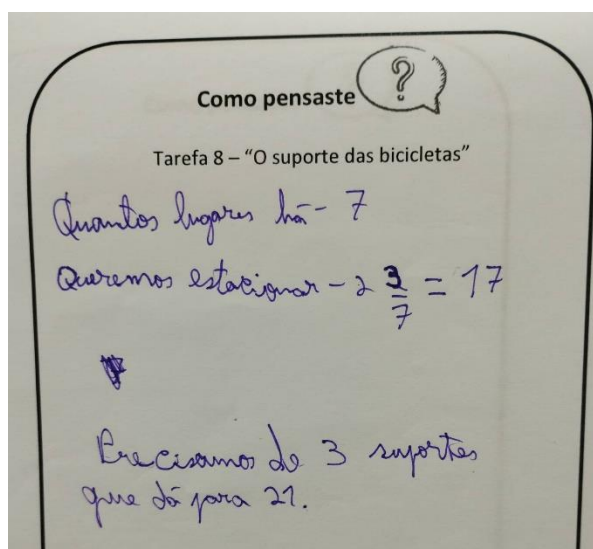 Como pensaste ?
Tarefa 8 – “O suporte das bicicletas”
Quantos lugares há - 7
Queremos estacionar - 2 3/7 = 17
Precisamos de 3 suportes
que dá para 21.